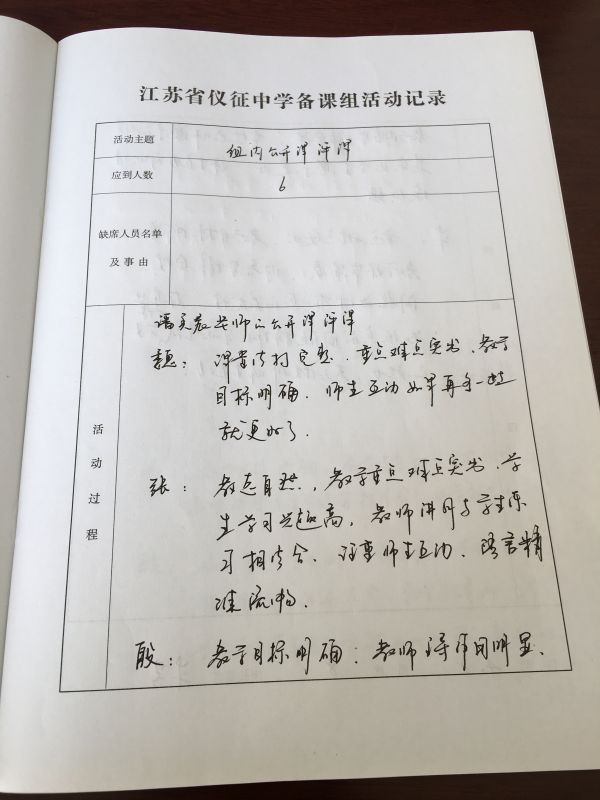 江苏省仪征中学备课组活动记录
活动主题
组内公开课评课
应到人数
6
缺席人员名单
及事由
活动过程
老师的公开课评课
课堂结构完整、重点难点突出、教学
目标明确。师生互动如果再多一些
就更好了。
张:教态自然,教学重点难点突出、学
生学习兴趣高,教师讲解与学生练
习相结合、注重师生互动、语言精
准流畅。
殷:教学目标明确;教师作用明显、